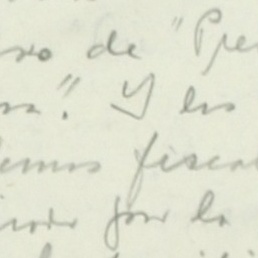 so de "Pre
sa". Y los
emos fisca
por la